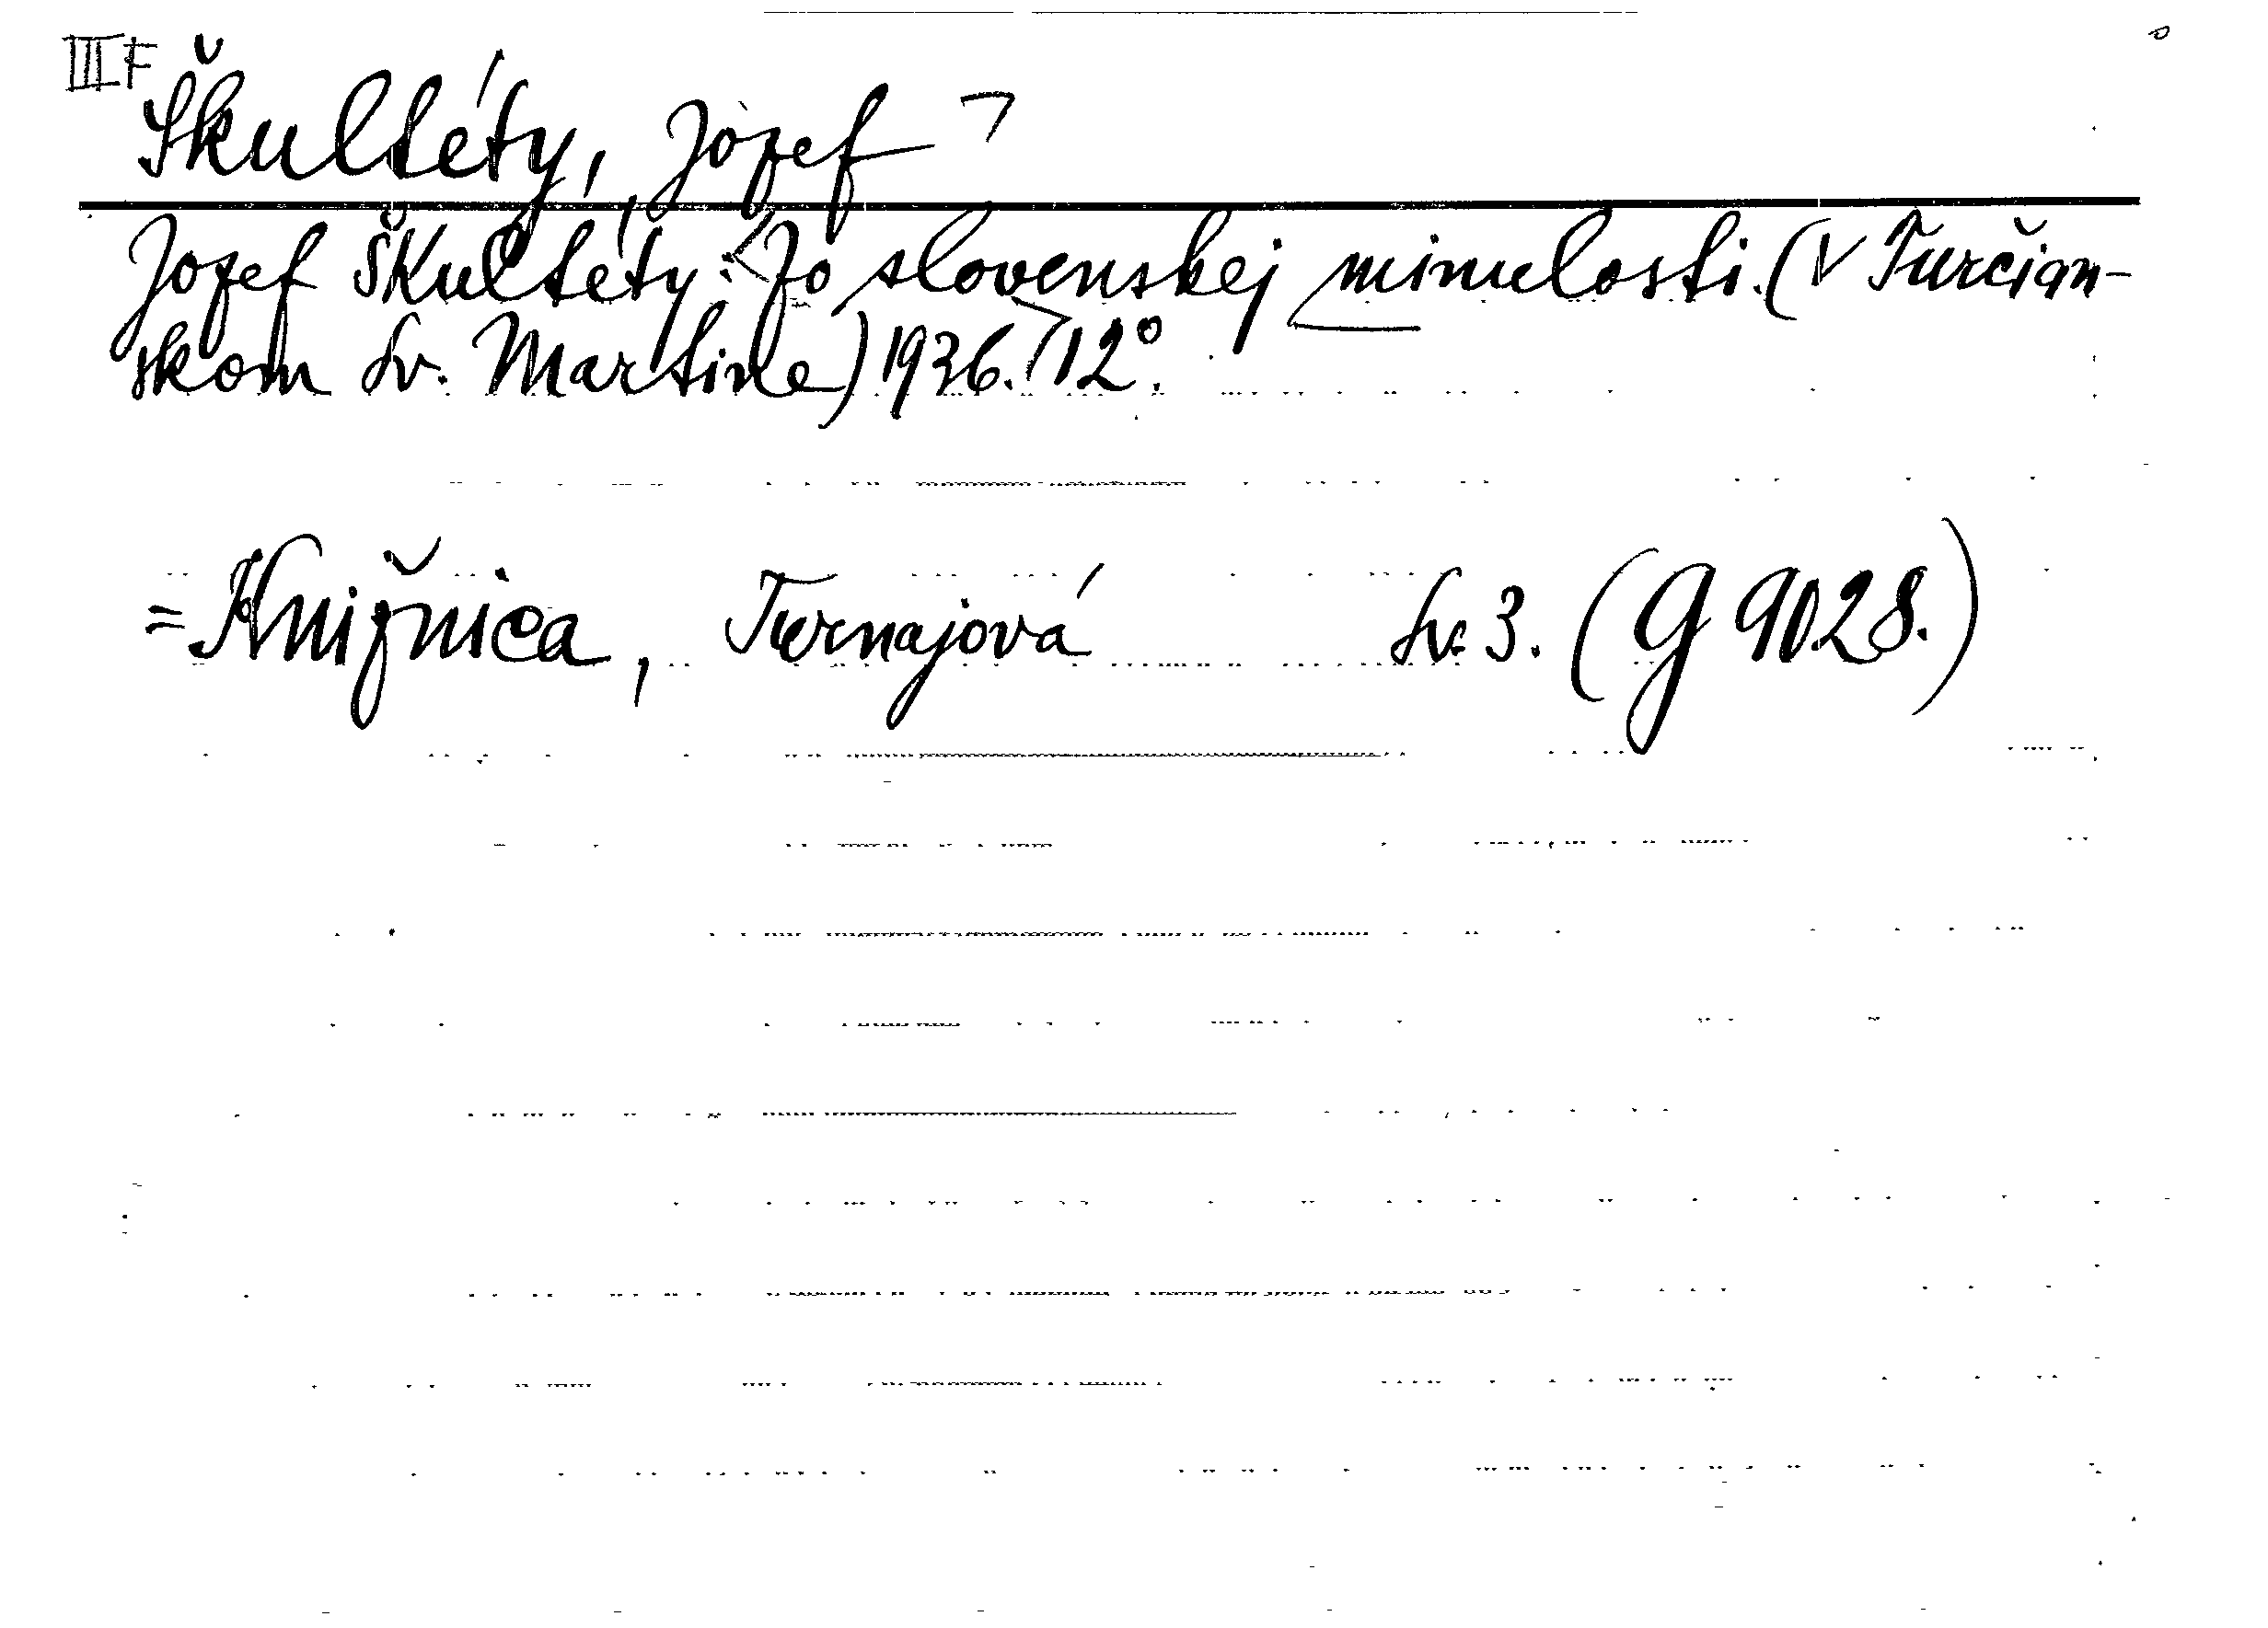 III F
Škultéty, Jozef
Jozef Škultéty: Zo slovenskej minulosti. (V Turčian-
skom Sv. Martine) 1936. 12°.
= Knižnica, Turnajová Sv. 3. (G 9028.)